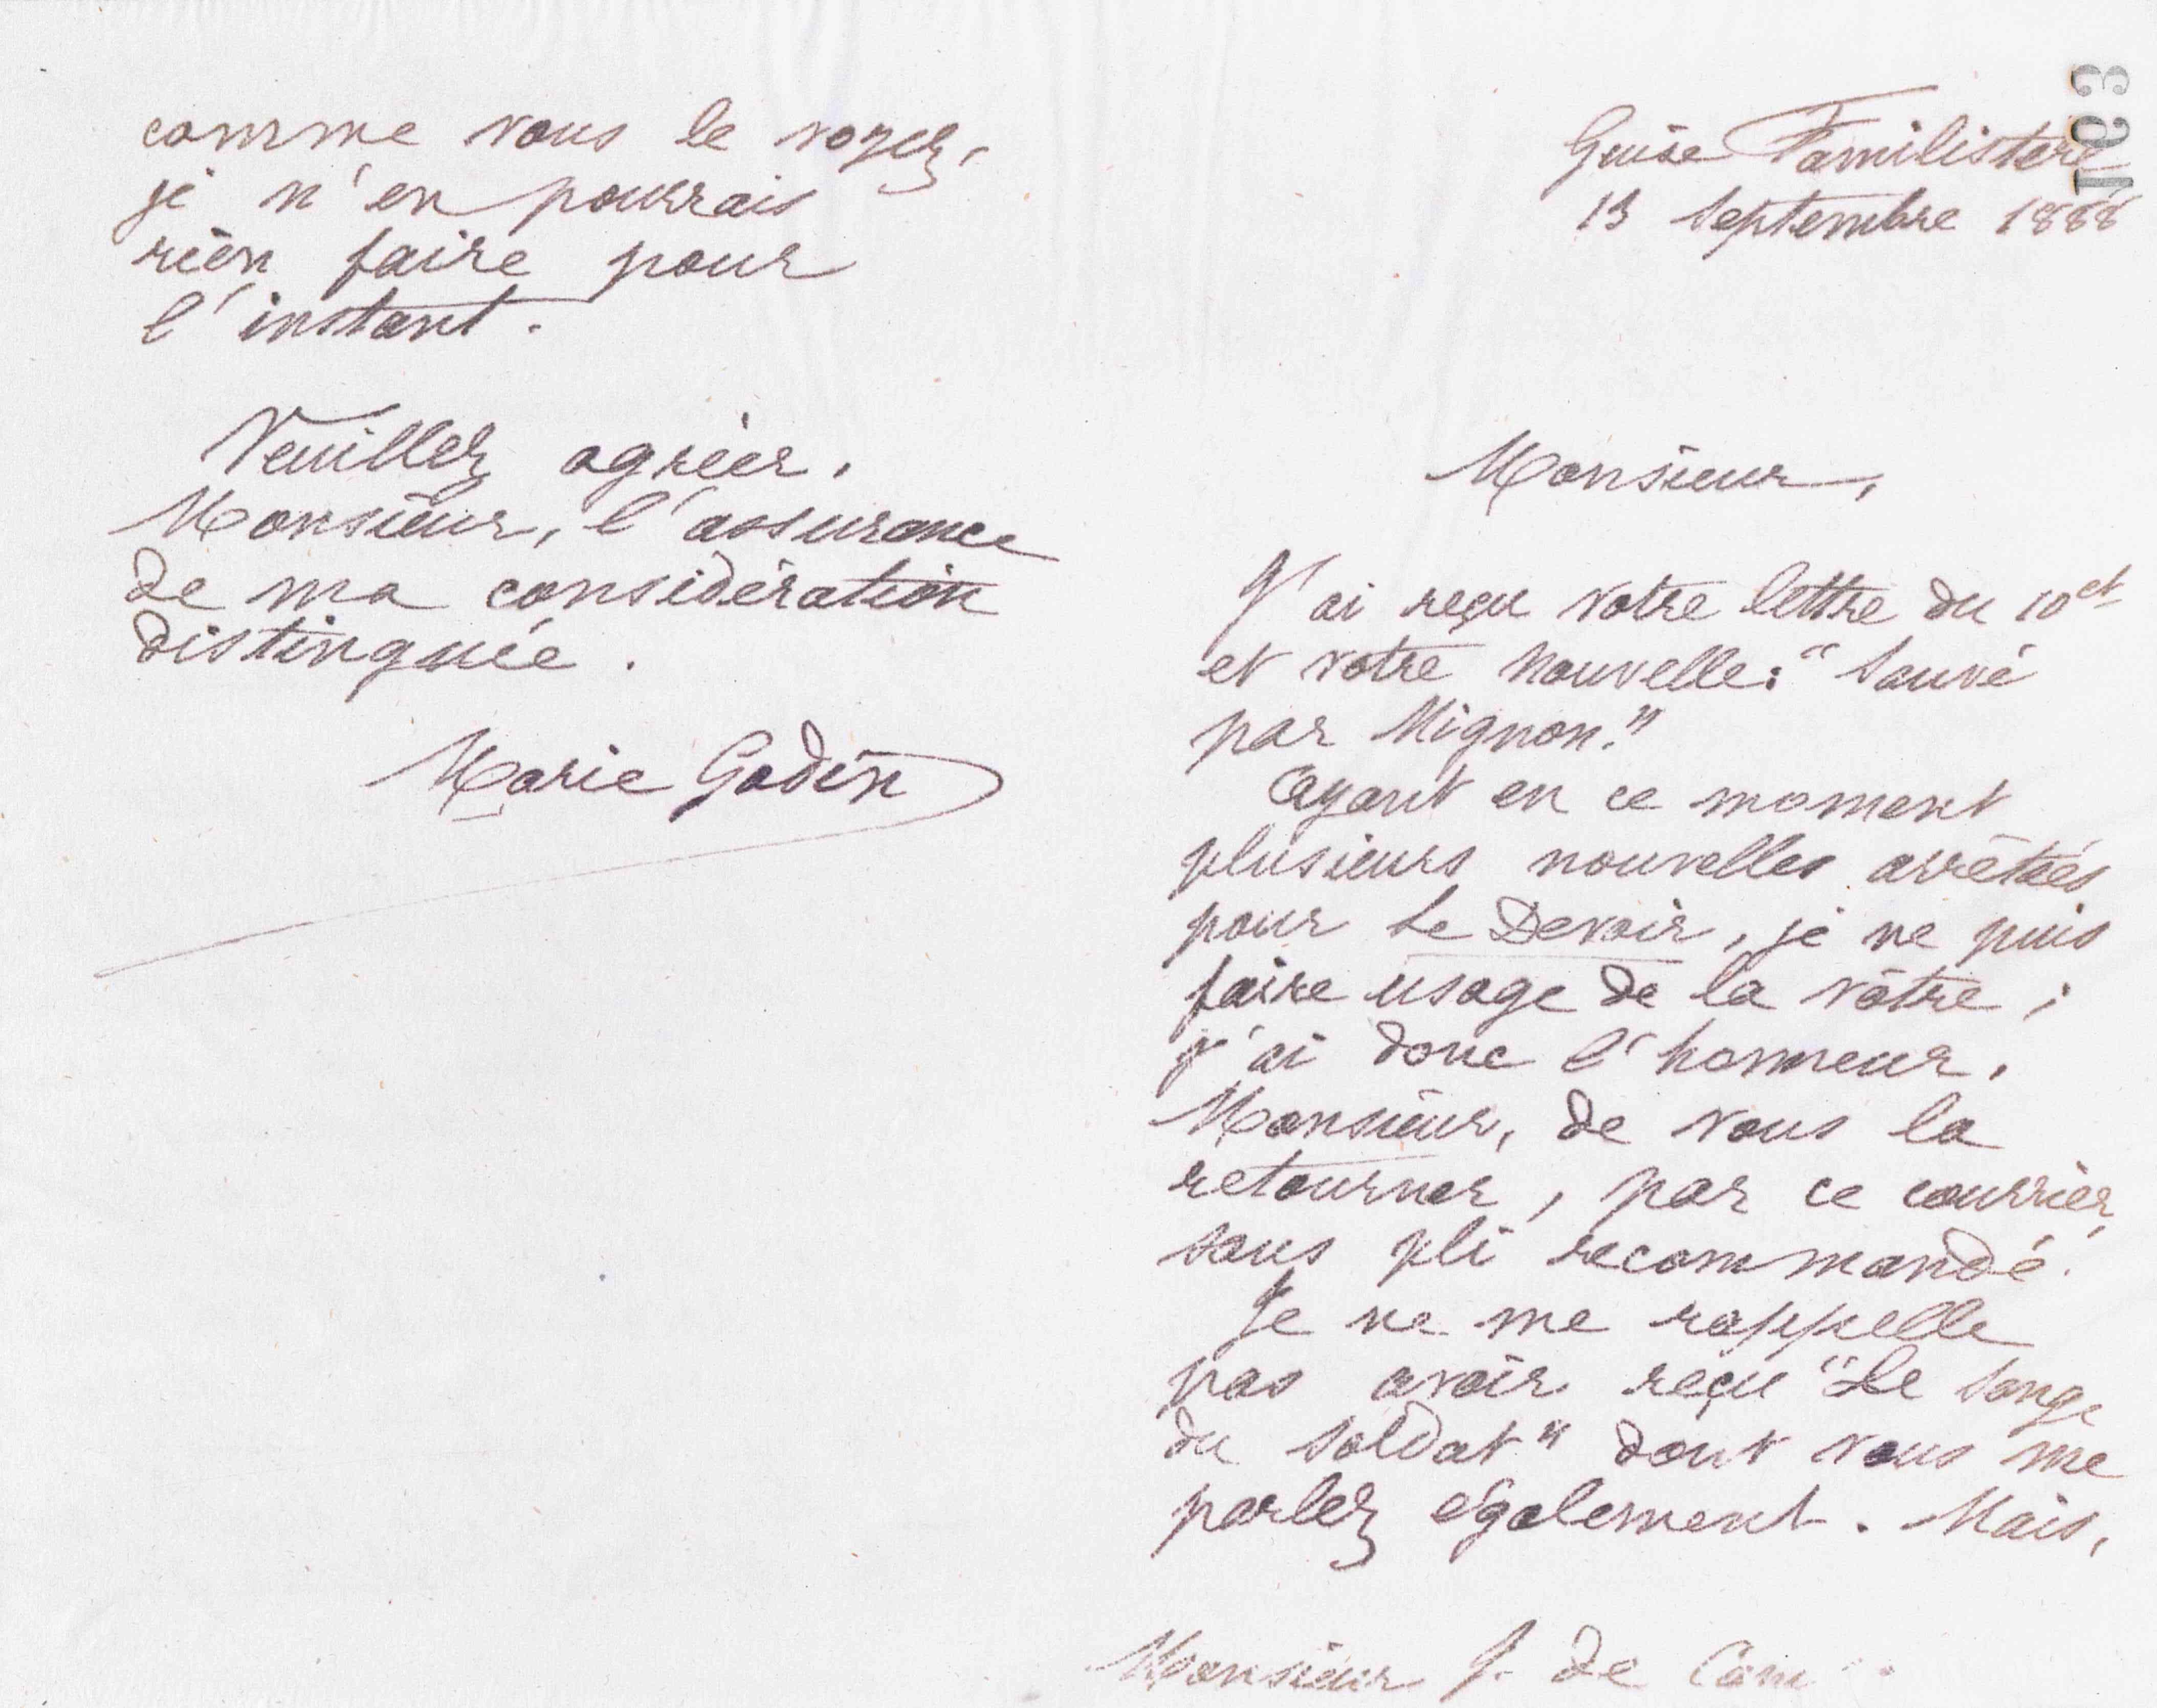 163
Guise Familistère
13 Septembre 1888
Monsieur,
J'ai reçu votre lettre du 10 ct
et votre nouvelle: "Sauvé
par Mignon."
Ayant en ce moment
plusieurs nouvelles arrêtées
pour Le Devoir, je ne puis
faire usage de la vôtre;
j'ai donc l'honneur,
Monsieur, de vous la
retourner, par ce courrier,
sous pli recommandé.
Je ne me rappelle
pas avoir reçu "Le Songe
du Soldat" dont vous me
parlez également. Mais,
Monsieur J. de
comme vous le voyez,
je n'en pourrais
rien faire pour
l'instant.
Veuillez agréer,
Monsieur, l'assurance
de ma considération
distinguée.
Marie Godin